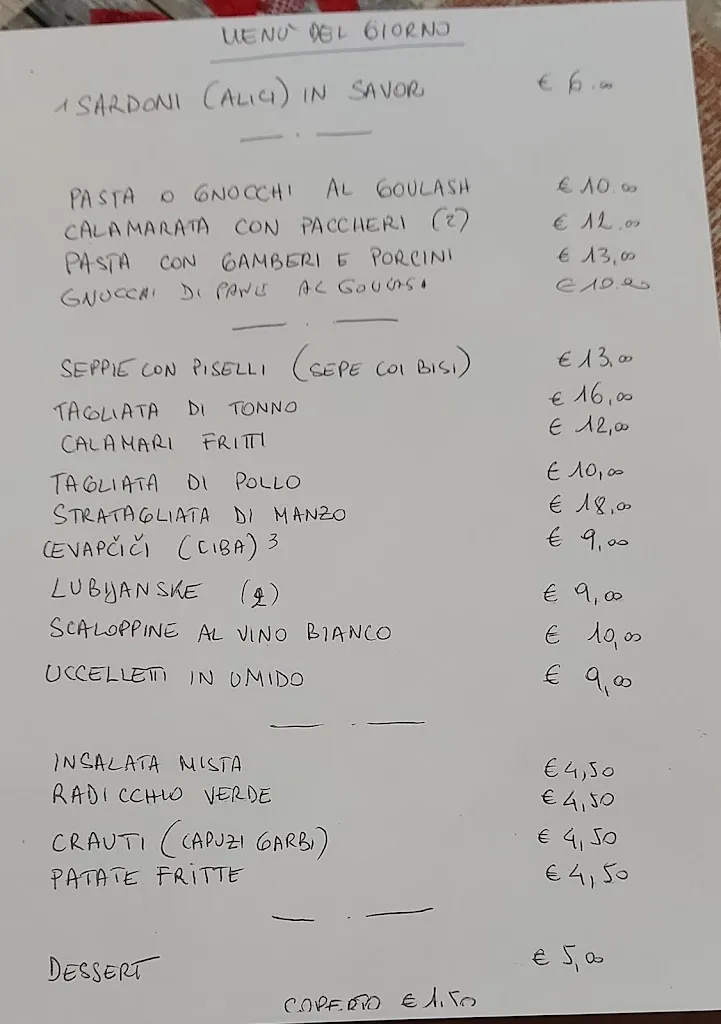 MENU' DEL GIORNO
1 SARDONI (ALICI) IN SAVOR € 6.00
PASTA O GNOCCHI AL GOULASH € 10.00
CALAMARATA CON PACCHERI (2) € 12.00
PASTA CON GAMBERI E PORCINI € 13,00
GNOCCHI DI PANE AL € 10.00
SEPPIE CON PISELLI (SEPE COI BISI) € 13,00
TAGLIATA DI TONNO € 16,00
CALAMARI FRITTI € 12,00
TAGLIATA DI POLLO € 10,00
STRATAGLIATA DI MANZO € 18,00
CEVAPČIČI (CIBA) 3 € 9,00
LUBIJANSKE (2) € 9,00
SCALOPPINE AL VINO BIANCO € 10,00
UCCELLETTI IN UMIDO € 9,00
INSALATA MISTA € 4,50
RADICCHIO VERDE € 4,50
CRAUTI (CAPUZI GARBI) € 4,50
PATATE FRITTE € 4,50
DESSERT € 5,00
COPERTO € 1.50